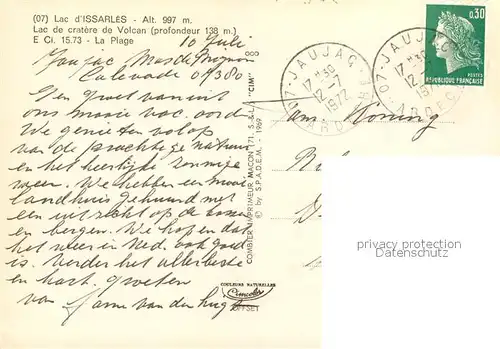 (07) Lac d'ISSARLES - Alt. 997 m.
Lac de cratère de Volcan (profondeur 138 m.)
E Ci. 15.73 - La Plage
10 Juli
Jaujac, Mas de Mignon
Calevade 07380
Een groet vanuit
ons mooie vac. oord
We genieten volop
van de prachtige natuur
en het heerlijke zonnige
weer. We hebben een mooi
landhuis gehuurd met
een uitzicht op de
en bergen. We hopen dat
het weer in Ned. ook goed
is. Verder het allerbeste
en hart. groeten
van Fam. van der
COMBIER IMPRIMEUR MACON (71, S.-&-L.) "CIM"
© by S.P.A.D.E.M. - 1969
COULEURS NATURELLES
Cimcolor
OFFSET
07-JAUJAC
17H30
12-7
1972
ARDECHE
07-JAUJAC
17H30
12-7
1972
ARDECHE
0,30
POSTES
RÉPUBLIQUE FRANÇAISE
Fam. Koning
protected copyright
Datenschutz